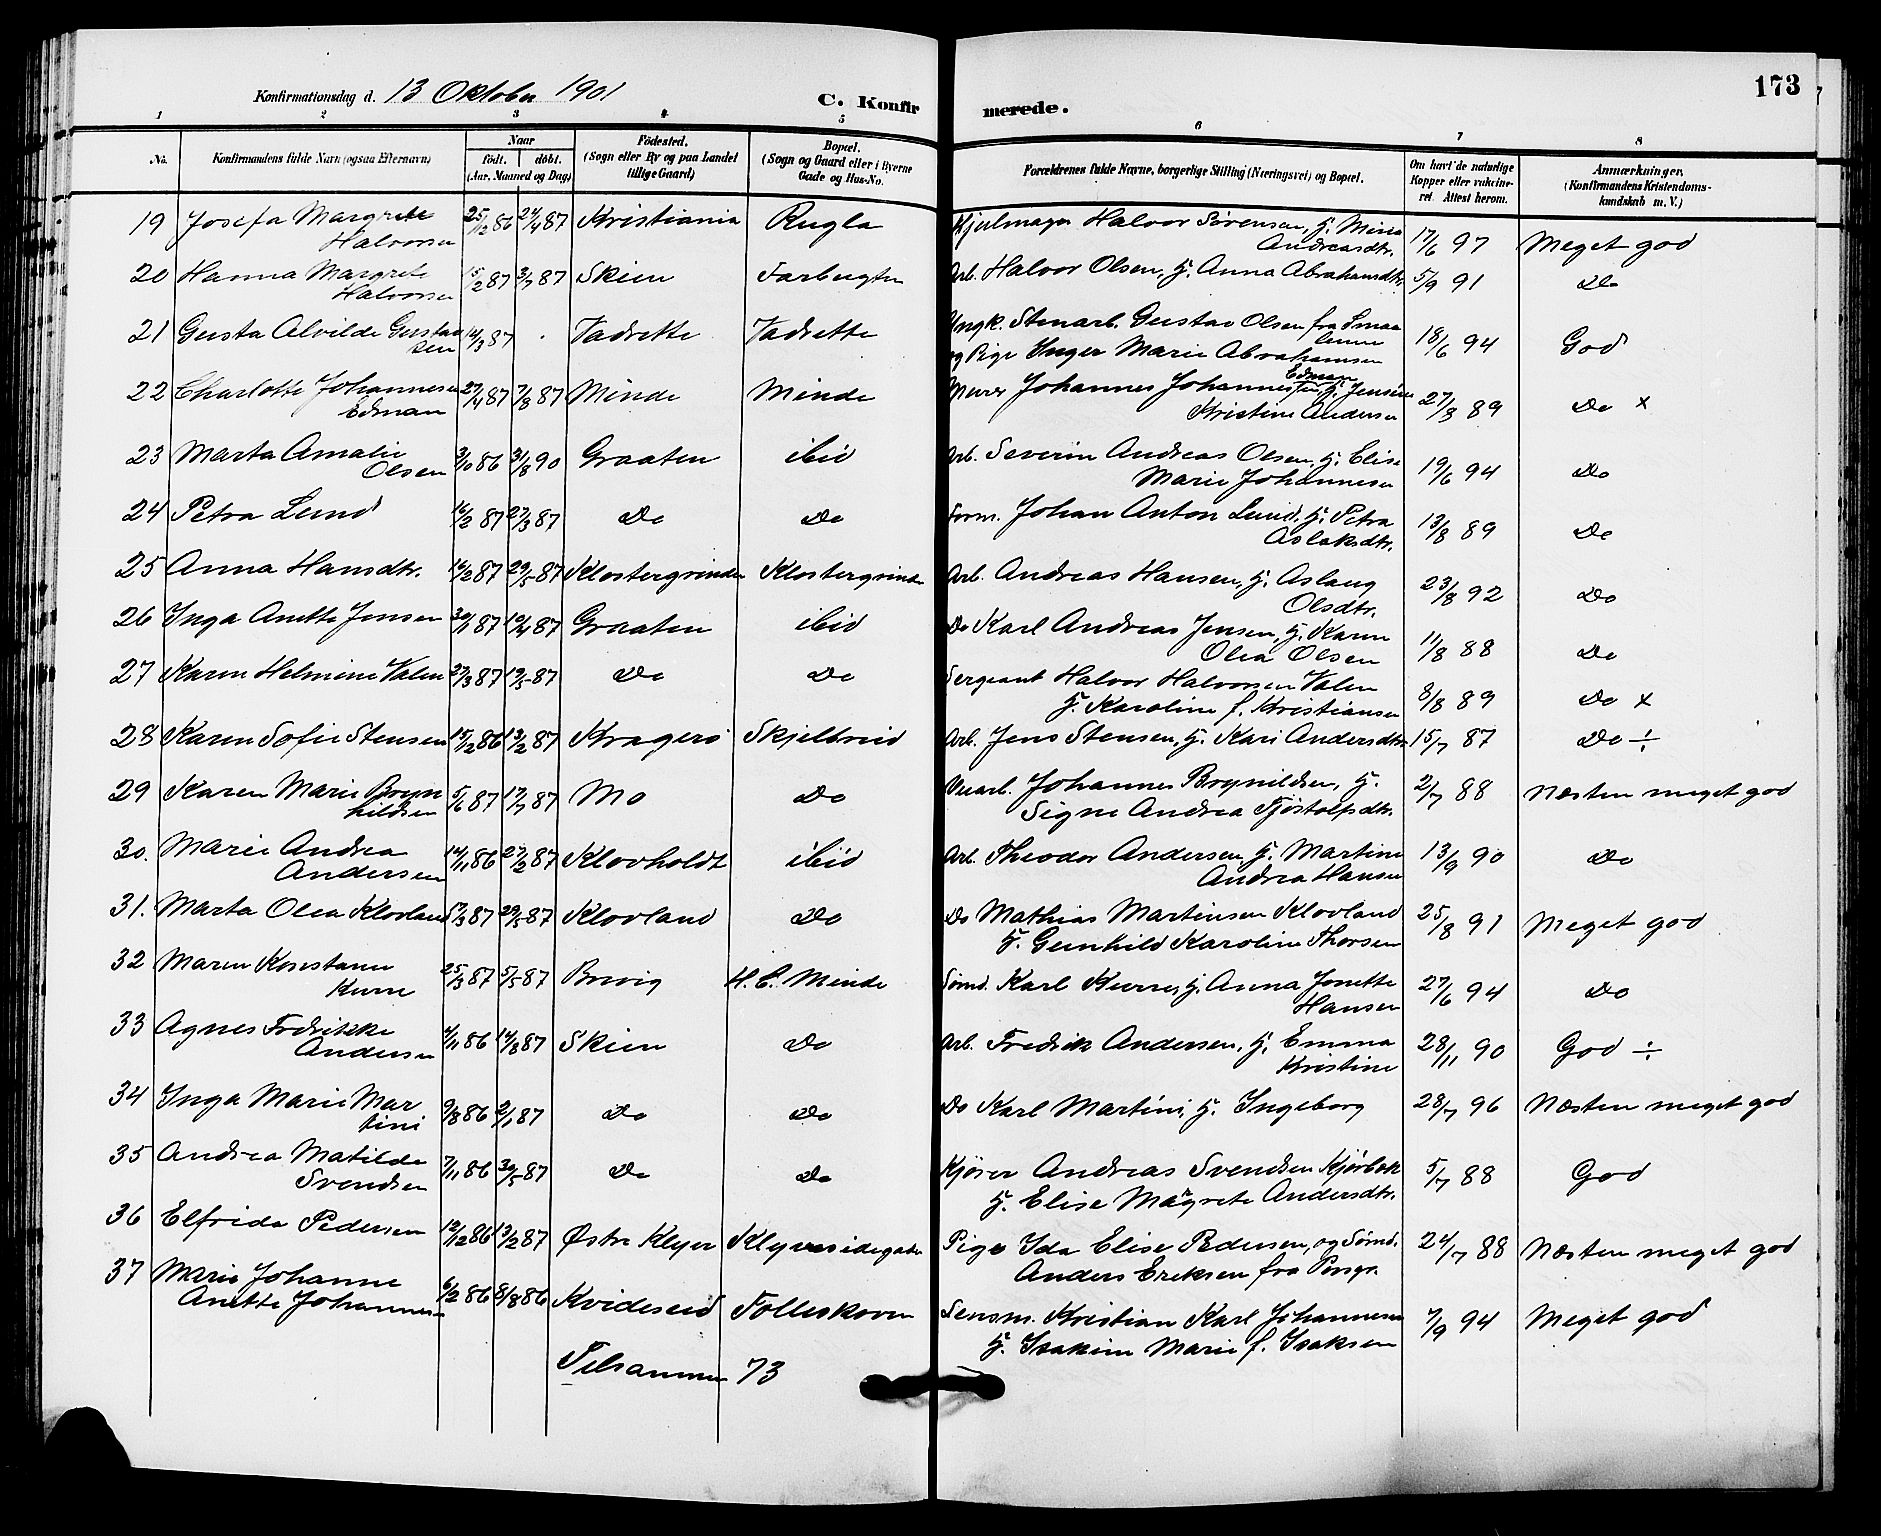 Konfirmationsdag d. 13 Oktober 1901
C. Konfirmerede.
173
1 2 3 4 5 6 7 8
No. Konfirmandens fulde Navn (ogsaa Efternavn) Naar født. døbt. (Aar, Maaned og Dag) Fødested. (Sogn eller By og paa Landet tillige Gaard) Bopæl. (Sogn og Gaard eller i Byerne Gade og Hus-No. Forældrenes fulde Navne, borgerlige Stilling (Næringsvei) og Bopæl. Om havt de naturlige Kopper eller vakcineret. Attest herom. Anmærkninger. (Konfirmandens Kristendomskundskab m. V.)
19 Josefa Margrete Halvorsen 25/12 86 24/4 87 Kristiania Rugla Hjulmager Halvor Sørensen, H. Mina Andreasdtr. 17/6 97 Meget god
20 Hanna Margrete Halvorsen 15/2 87 3/7 87 Skien Farbugten Arb. Halvor Olsen, H. Anna Abrahamsdtr 5/9 91 Do
21 Gusta Alvilde Gustavsen 14/3 87 . Vadrette Vadrette Ungk. Stenarb. Gustav Olsen fra Smaalenene og Pige Inger Marie Abrahamsen 18/6 94 God
22 Charlotte Johannesen Edman 27/4 87 7/8 87 Minde Minde Murer Johannes Johannessen Edman, H. Jensine Kristine Andersen 27/3 89 Do x
23 Marta Amalie Olsen 3/10 86 31/8 90 Graaten ibid Arb. Severin Andreas Olsen, H. Elise Marie Johannesen 19/6 94 Do
24 Petra Lund 16/2 87 27/3 87 Do Do Form. Johan Anton Lund, H. Petra Aslaksdtr. 13/8 89 Do
25 Anna Hansdtr. 16/2 87 29/5 87 Klostergrinden Klostergrind Arb. Andreas Hansen, H. Aslaug Olsdtr. 23/8 92 Do
26 Inga Anette Jensen 30/1 87 10/4 87 Graaten ibid Do Karl Andreas Jensen, H. Karen Olea Olsen 11/8 88 Do
27 Karen Helmine Valen 27/3 87 19/5 87 Do Do Sergeant Halvor Halvorsen Valen H. Karoline f. Kristiansen 8/8 89 Do x
28 Karen Sofie Stensen 15/12 86 13/2 87 Kragerø Skjelbreid Arb. Jens Stensen, H. Kari Andersdtr 15/7 87 Do ÷
29 Karen Marie Brynhildsen 5/6 87 17/7 87 Mo Do Veiarb. Johannes Brynildsen, H. Signe Andrea Tjøstolfsdtr. 2/7 88 Næsten meget god
30. Marie Andrea Andersen 14/11 86 27/2 87 Klovholdt ibid Arb. Theodor Andersen, H. Martine Andrea Hansen 13/9 90 Do
31. Marta Olea Klovland 17/3 87 29/5 87 Klovland Do Do Mathias Martinsen Klovland H. Gunhild Karoline Thorsen 25/8 91 Meget god
32 Maren Konstanse Kurre 25/3 87 5/5 87 Brevig H. C. Minde Sømd. Karl Kurre, H. Anna Jonette Hansen 27/6 94 Do
33 Agnes Fredrikke Andersen 4/11 86 14/8 87 Skien Do Arb. Fredrik Andersen, H. Emma Kristine 28/11 90 God ÷
34 Inga Marie Martini 9/8 86 2/1 87 Do Do Do Karl Martini, H. Ingeborg 28/7 96 Næsten meget god
35 Andrea Matilde Svendsen 7/11 86 30/5 87 Do Do Kjører Andreas Svendsen Kjørbek H. Elise Magrete Andersdtr. 5/7 88 God
36 Elfrida Pedersen 12/12 86 13/2 87 Østre Klyer Klyvesidegate Pige Ida Elise Pedersen, og Sømd. Anders Eriksen fra Porsgr. 24/7 88 Næsten meget god
37 Marie Johanne Anette Johannesen 6/2 86 8/8 86 Kvideseid Follaskoven Lensm. Kristian Karl Johannesen H. Isakine Marie f. Isaksen 7/9 94 Meget god
Tilsammen 73